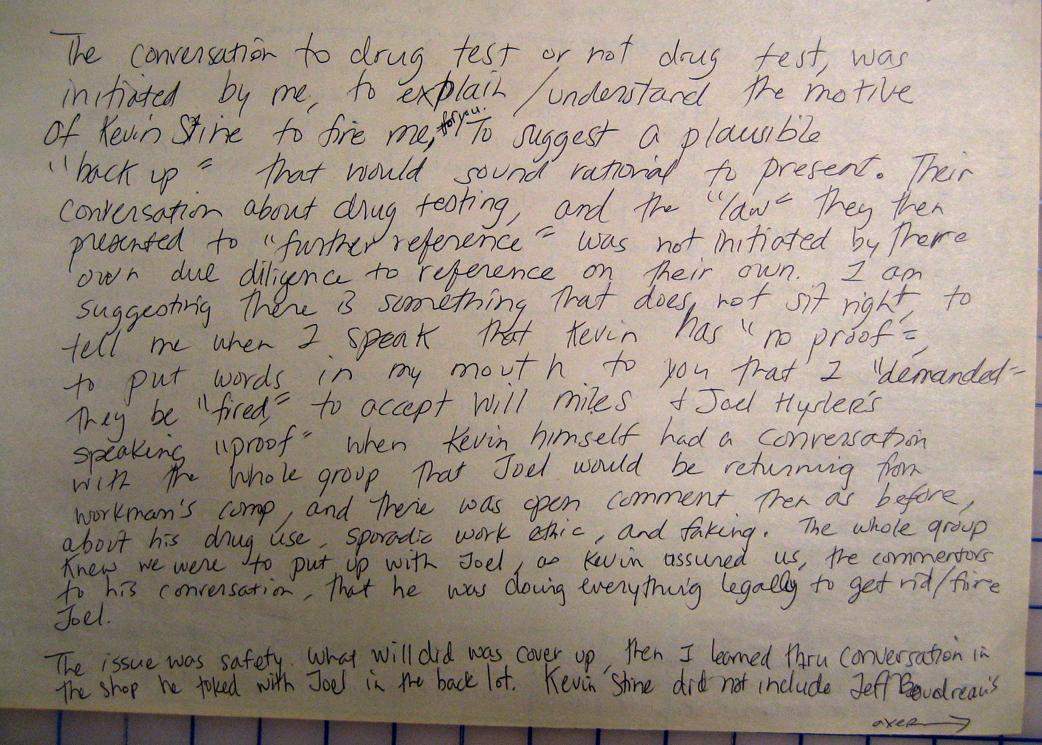 The conversation to drug test or not drug test, was
initiated by me, to explain / understand the motive
of Kevin Stine to fire me, for you. To suggest a plausible
"back up" that would sound rational to present. Their
conversation about drug testing, and the "law" they then
presented to "further reference" was not initiated by there
own due diligence to reference on their own. I am
suggesting there is something that does not sit right, to
tell me when I speak that Kevin has "no proof",
to put words in my mouth to you that I "demanded"
they be "fired," to accept Will Miles + Joel Hysler's
speaking "proof" when Kevin himself had a conversation
with the whole group that Joel would be returning from
workman's comp, and there was open comment then as before,
about his drug use, sporadic work ethic, and faking. The whole group
knew we were to put up with Joel, as Kevin assured us, the commentors
to his conversation, that he was doing everything legally to get rid/fire
Joel.
The issue was safety. What Will did was cover up, then I learned thru conversation in
the shop he toked with Joel in the back lot. Kevin Stine did not include Jeff Boudreau's
over →